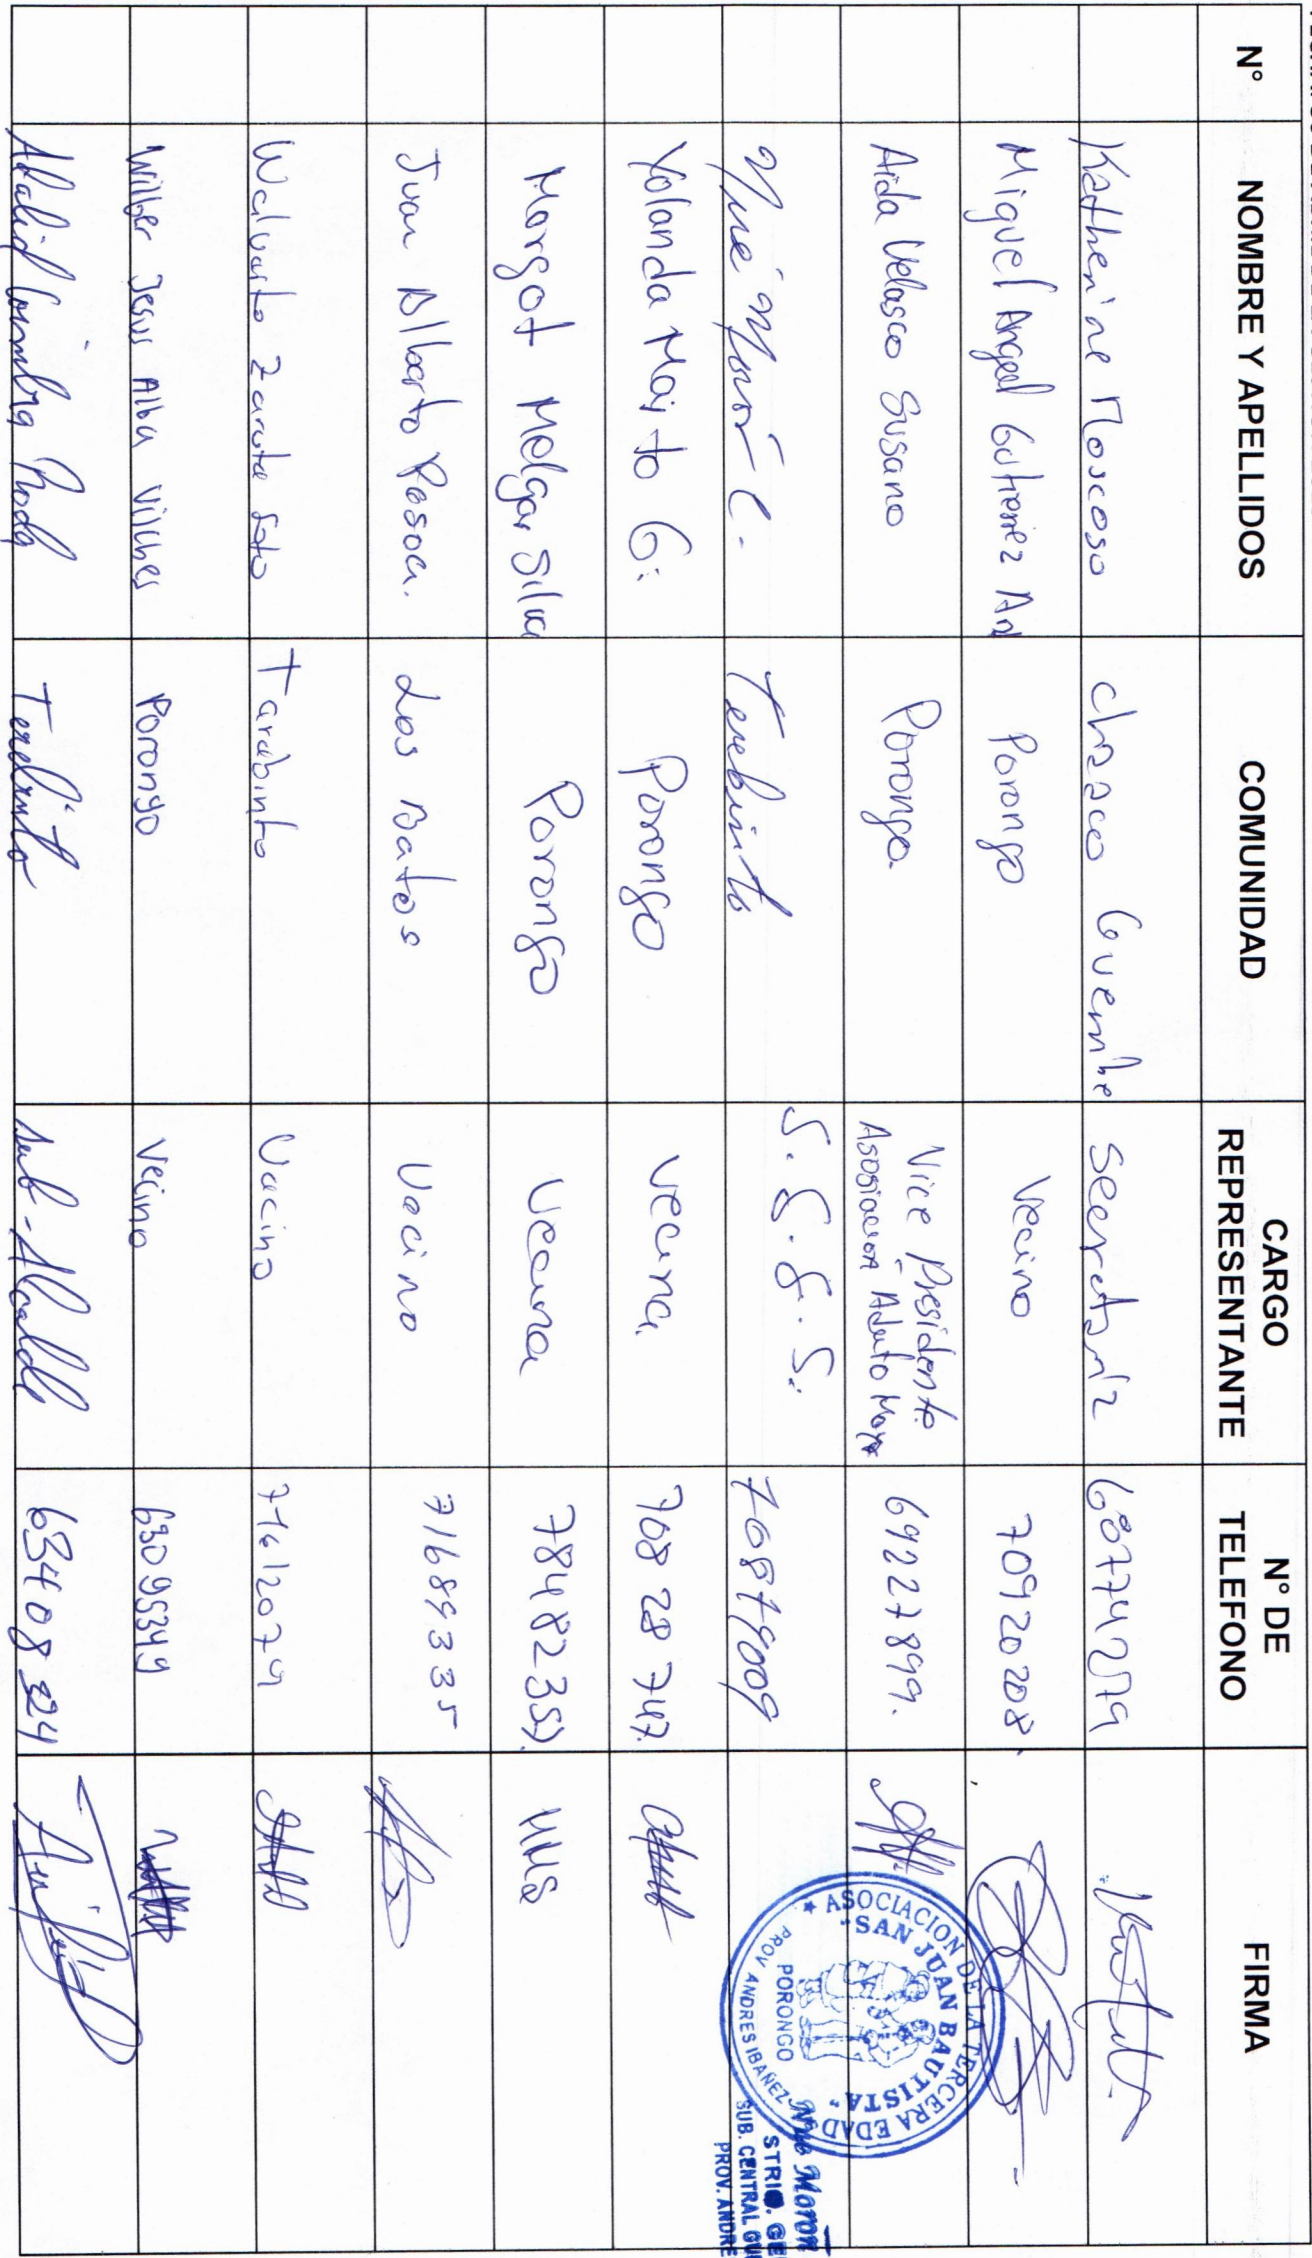 N° NOMBRE Y APELLIDOS COMUNIDAD CARGO REPRESENTANTE N° DE TELEFONO FIRMA
Katherine Moscoso Chaaco Guembe Secretaria 68774279
Miguel Angel Gutierrez An Porongo Vecino 70920208
Aida Velasco Susano Porongo. Vice Presidente Asosiacion Adulto Mayor 69227899.
Terebinto S.G.G.S. 70879009
Yolanda Maito G: Porongo vecina 708 28 747.
Margot Melgar Silva Porongo Vecina
Juan Alberto Pesoa. Los Batos Vecino 71689335
Walverto Zarate Soto Tarabinto Vecino
Wilber Jesus Alba Vilches Porongo Vecino 63095349
Adalid Coimbra Roda Terebinto Sub-Alcalde
ASOCIACION DE LA TERCERA EDAD
"SAN JUAN BAUTISTA"
PORONGO
PROV. ANDRES IBAÑEZ
STRIO. GE
SUB. CENTRAL
PROV. ANDRE